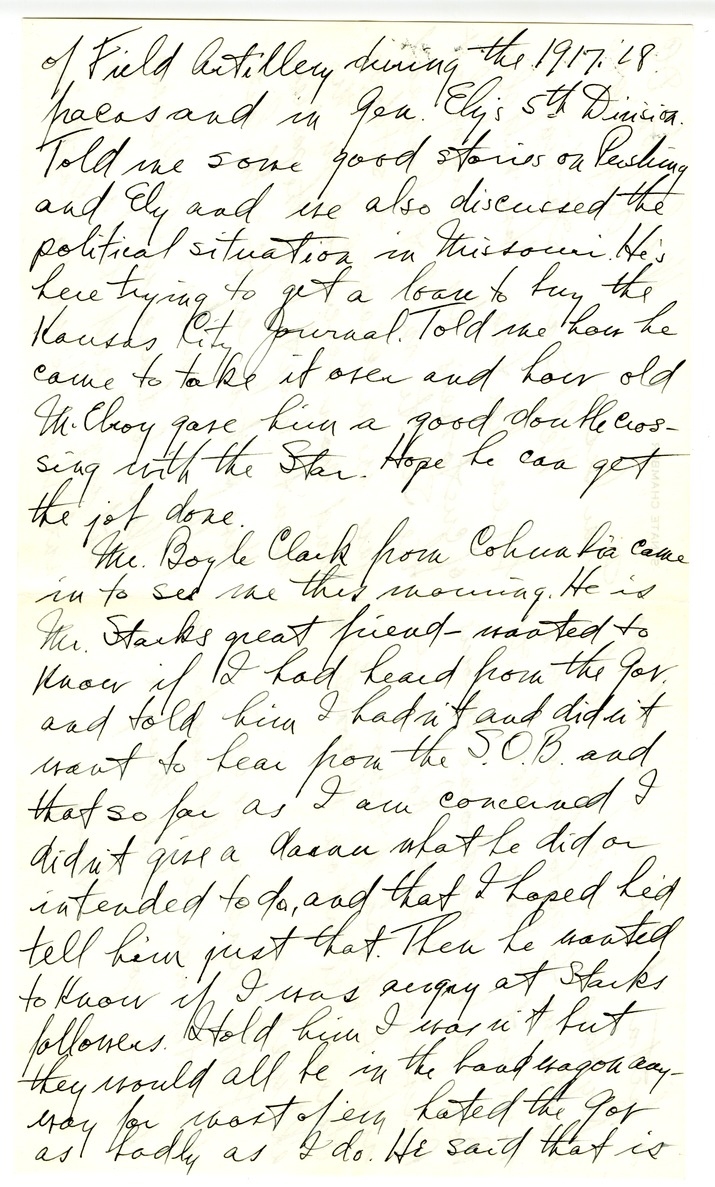 of Field Artillery during the 1917, '18
fracas and in Gen. Ely's 5th Division.
Told me some good stories on Pershing
and Ely and we also discussed the
political situation in Missouri. He's
here trying to get a loan to buy the
Kansas City Journal. Told me how he
came to take it over and how old
McElroy gave him a good double cros-
sing with the Star. Hope he can get
the job done.
Mr. Boyle Clark from Columbia came
in to see me this morning. He is
Mr. Starks great friend - wanted to
know if I had heard from the Gov.
and told him I hadn't and didn't
want to hear from the S.O.B. and
that so far as I am concerned I
didn't give a damn what he did or
intended to do, and that I hoped he'd
tell him just that. Then he wanted
to know if I was angry at Starks
followers. I told him I wasn't but
they would all be in the band wagon any-
way for most of em hated the Gov
as badly as I do. He said that is